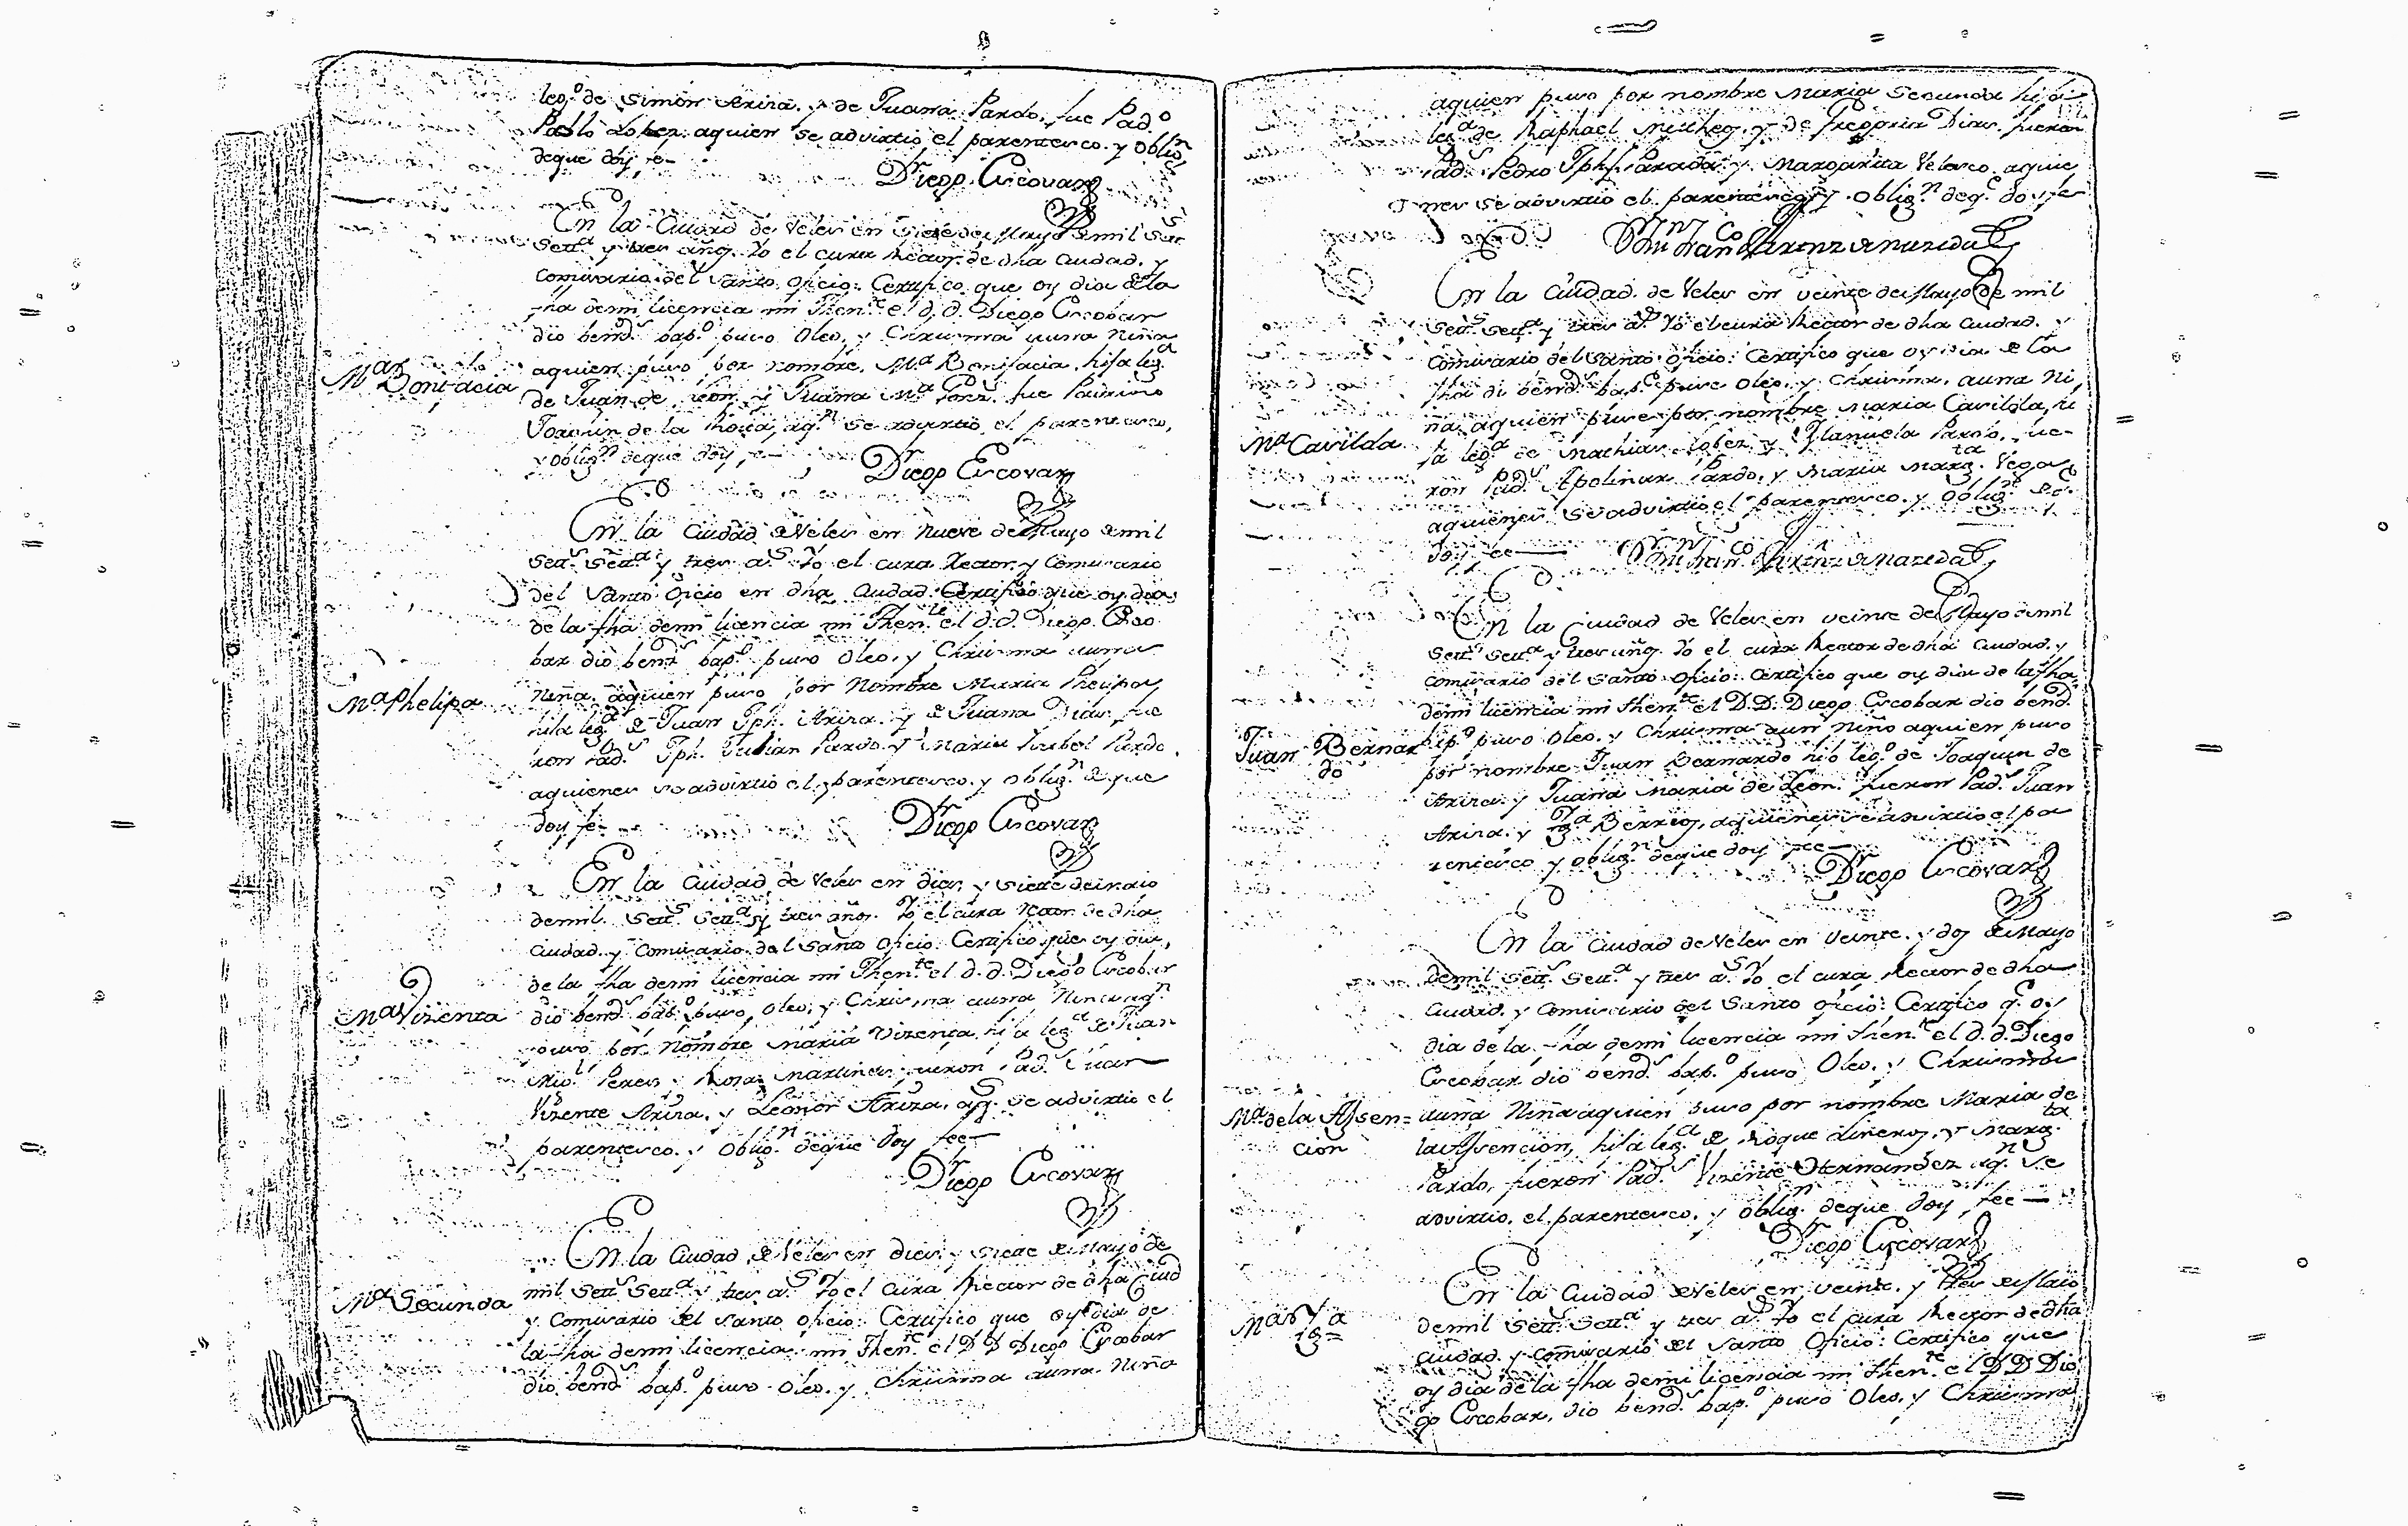 leg.º de Simon Ariza, y de Juana Pardo, fue Pad.º
Pablo Lopez aquien se advirtio el parentesco, y oblig.n
deque doy fe
D.r Diego Escovar
En la Ciudad de Veles en Siete de Mayo de mil Set.s
Set.ta y tres añ.s Yo el cura Rector de dha Ciudad, y
Comisario del Santo Oficio: Certifico que oy dia de la
fha demi licencia mi Then.te el d.d. Diego Escobar
dio bend.s bap.º puso Oleo, y Chrisma auna Niña
M.a Bonifacia
aquien puso por nombre, M.a Bonifacia, hija leg.a
de Juan de Leon y Juana M.a Perez. fue Padrino
Joaquin de la Rocha, aq.n se advirtio el parentesco,
y oblig.n deque doy fe
D.r Diego Escovar
En la Ciudad de Veles en Nueve de Mayo de mil
Set.s Set.ta y tres a.s Yo el cura Rector y Comisario
del Santo Oficio en dha Ciudad: Certifico que oy dia
de la fha demi licencia mi Then.te el d.d. Diego Esco
bar dio bend.s bap.º puso Oleo, y Chrisma auna
M.a Phelipa
Niña aquien puso por Nombre Maria Phelipa
hija leg.a de Juan Jph. Ariza. y de Juana Dias, fue
ron Pad.s Jph. Julian Pardo. y Maria Isabel Pardo.
aquienes se advirtio el parentesco, y oblig.n de que
doy fe
D.r Diego Escovar
En la Ciudad de Veles en dies, y siete de Maio
demil Set.s Set.ta y tres años. Yo el cura Rector de dha
Ciudad. y Comisario del Santo Oficio: Certifico que oy dia,
de la fha demi licencia mi Then.te el d.d. Diego Escobar
M.a Vizenta
dio bend.s bap.º puso, Oleo, y Chrisma auna Nina aq.n
puso por Nombre Maria Vizenta hija leg.a de Juan
Perez y Rosa Martines, fueron Pad.s Juan
Vizente Ariza. y Leonor Ariza, aq.s se advirtio el
parentesco. y oblig.n deque doy fee
D.r Diego Escovar
En la Ciudad de Veles en dies, y siete de Mayo de
M.a Secunda
mil Set.s Set.ta y tres a.s Yo el cura Rector de dha Ciud
y Comisario del Santo Oficio: Certifico que oy dia de
la fha demi licencia mi Then.te el D D Diego Escobar
dio bend.s bap.º puso Oleo, y Chrisma auna Niña
aquien puso por nombre Maria Secunda hija
leg.a de Raphael y de Gregoria Dias. fueron
Pad.s Pedro Jph. Parada. y Margarita Velasco, aquie
nes se advirtio el parentesco y oblig.n deq.e doy fe
En la Ciudad de Veles en veinte de Mayo de mil
Set.s Set.ta y tres a.s Yo el cura Rector de dha Ciudad. y
Comisario del Santo Oficio: Certifico que oy dia de la
fha di bend.s bap.º puse Oleo. y Chrisma, auna Ni
ña, aquien puse por nombre Maria Casilda, hi
M.a Casilda
ja leg.a de Mathias Lopez y Manuela Pardo, fue
ron Pad.s Apolinar Pardo, y Maria Marg.ta Vega
aquienes se advirtio el parentesco, y oblig.n de q.e
doy fee
En la Ciudad de Veles en veinte de Mayo demil
Set.s Set.ta y tres añ.s Yo el cura Rector de dha Ciudad. y
comisario del Santo Oficio: Certifico que oy dia de la fha
demi licencia mi then.te el D.D. Diego Escobar dio bend.s
Juan Bernar
do
bap.º puso Oleo. y Chrisma aun Niño aquien puso
por nombre Juan Bernardo hijo leg.º de Joaquin de
Ariza. y Juana Maria de Leon. fueron Pad.s Juan
Ariza. y Berrios, aquienes se advirtio el pa
rentesco y oblig.n deque doy fee
D.r Diego Escovar
En la Ciudad de Veles en Veinte. y dos de Mayo
demil Set.s Set.ta y tres a.s Yo el cura Rector de dha
Ciudad. y Comisario del Santo Oficio: Certifico q.e oy
dia de la fha demi licencia mi then.te el d.d. Diego
Escobar dio bend.s bap.º puso Oleo. y Chrisma
M.a de la Assen=
cion
auna Niña aquien puso por nombre Maria de
la Assencion, hija leg.a de Roque Lineros, y Marg.ta
Pardo, fueron Pad.s Vizente Hernandez aq.n se
advirtio, el parentesco, y oblig.n deque doy fee
Diego Escovar
En la Ciudad de Veles en veinte. y tres de Maio
demil Set.s Set.ta y tres a.s Yo el cura Rector de dha
Ciudad. y comisario del Santo Oficio: Certifico que
oy dia de la fha demi licencia mi then.te el D D Die
go Escobar, dio bend.s bap.º puso Oleo, y Chrisma